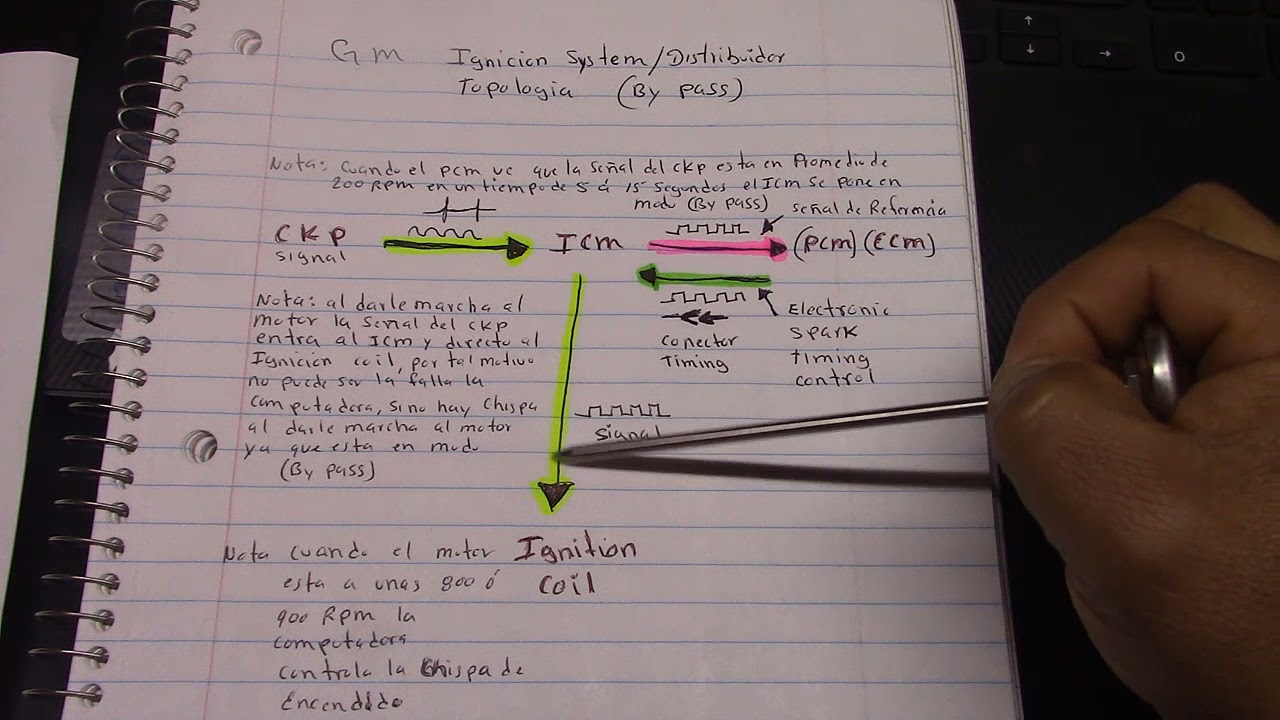 Gm Ignicion System/Distribuidor
Topologia (By pass)
Nota: cuando el pcm ve que la señal del ckp esta en Promedio de
200 RPM en un tiempo de 5 á 15 segundos el Icm se pone en
modo (By pass)
señal de Referncia
CKP
signal
Icm
(pcm) (Ecm)
Nota: al darle marcha al
motor la señal del ckp
entra al Icm y directo al
Ignicion coil, por tal motivo
no puede ser la falla la
computadora, si no hay chispa
al darle marcha al motor
ya que esta en modo
(By pass)
conector
Timing
Electronic
spark
timing
control
signal
Ignition
coil
Nota cuando el motor
esta a unas 800 ó
900 RPM la
computadora
controla la chispa de
Encendido
↑
↓
→
0